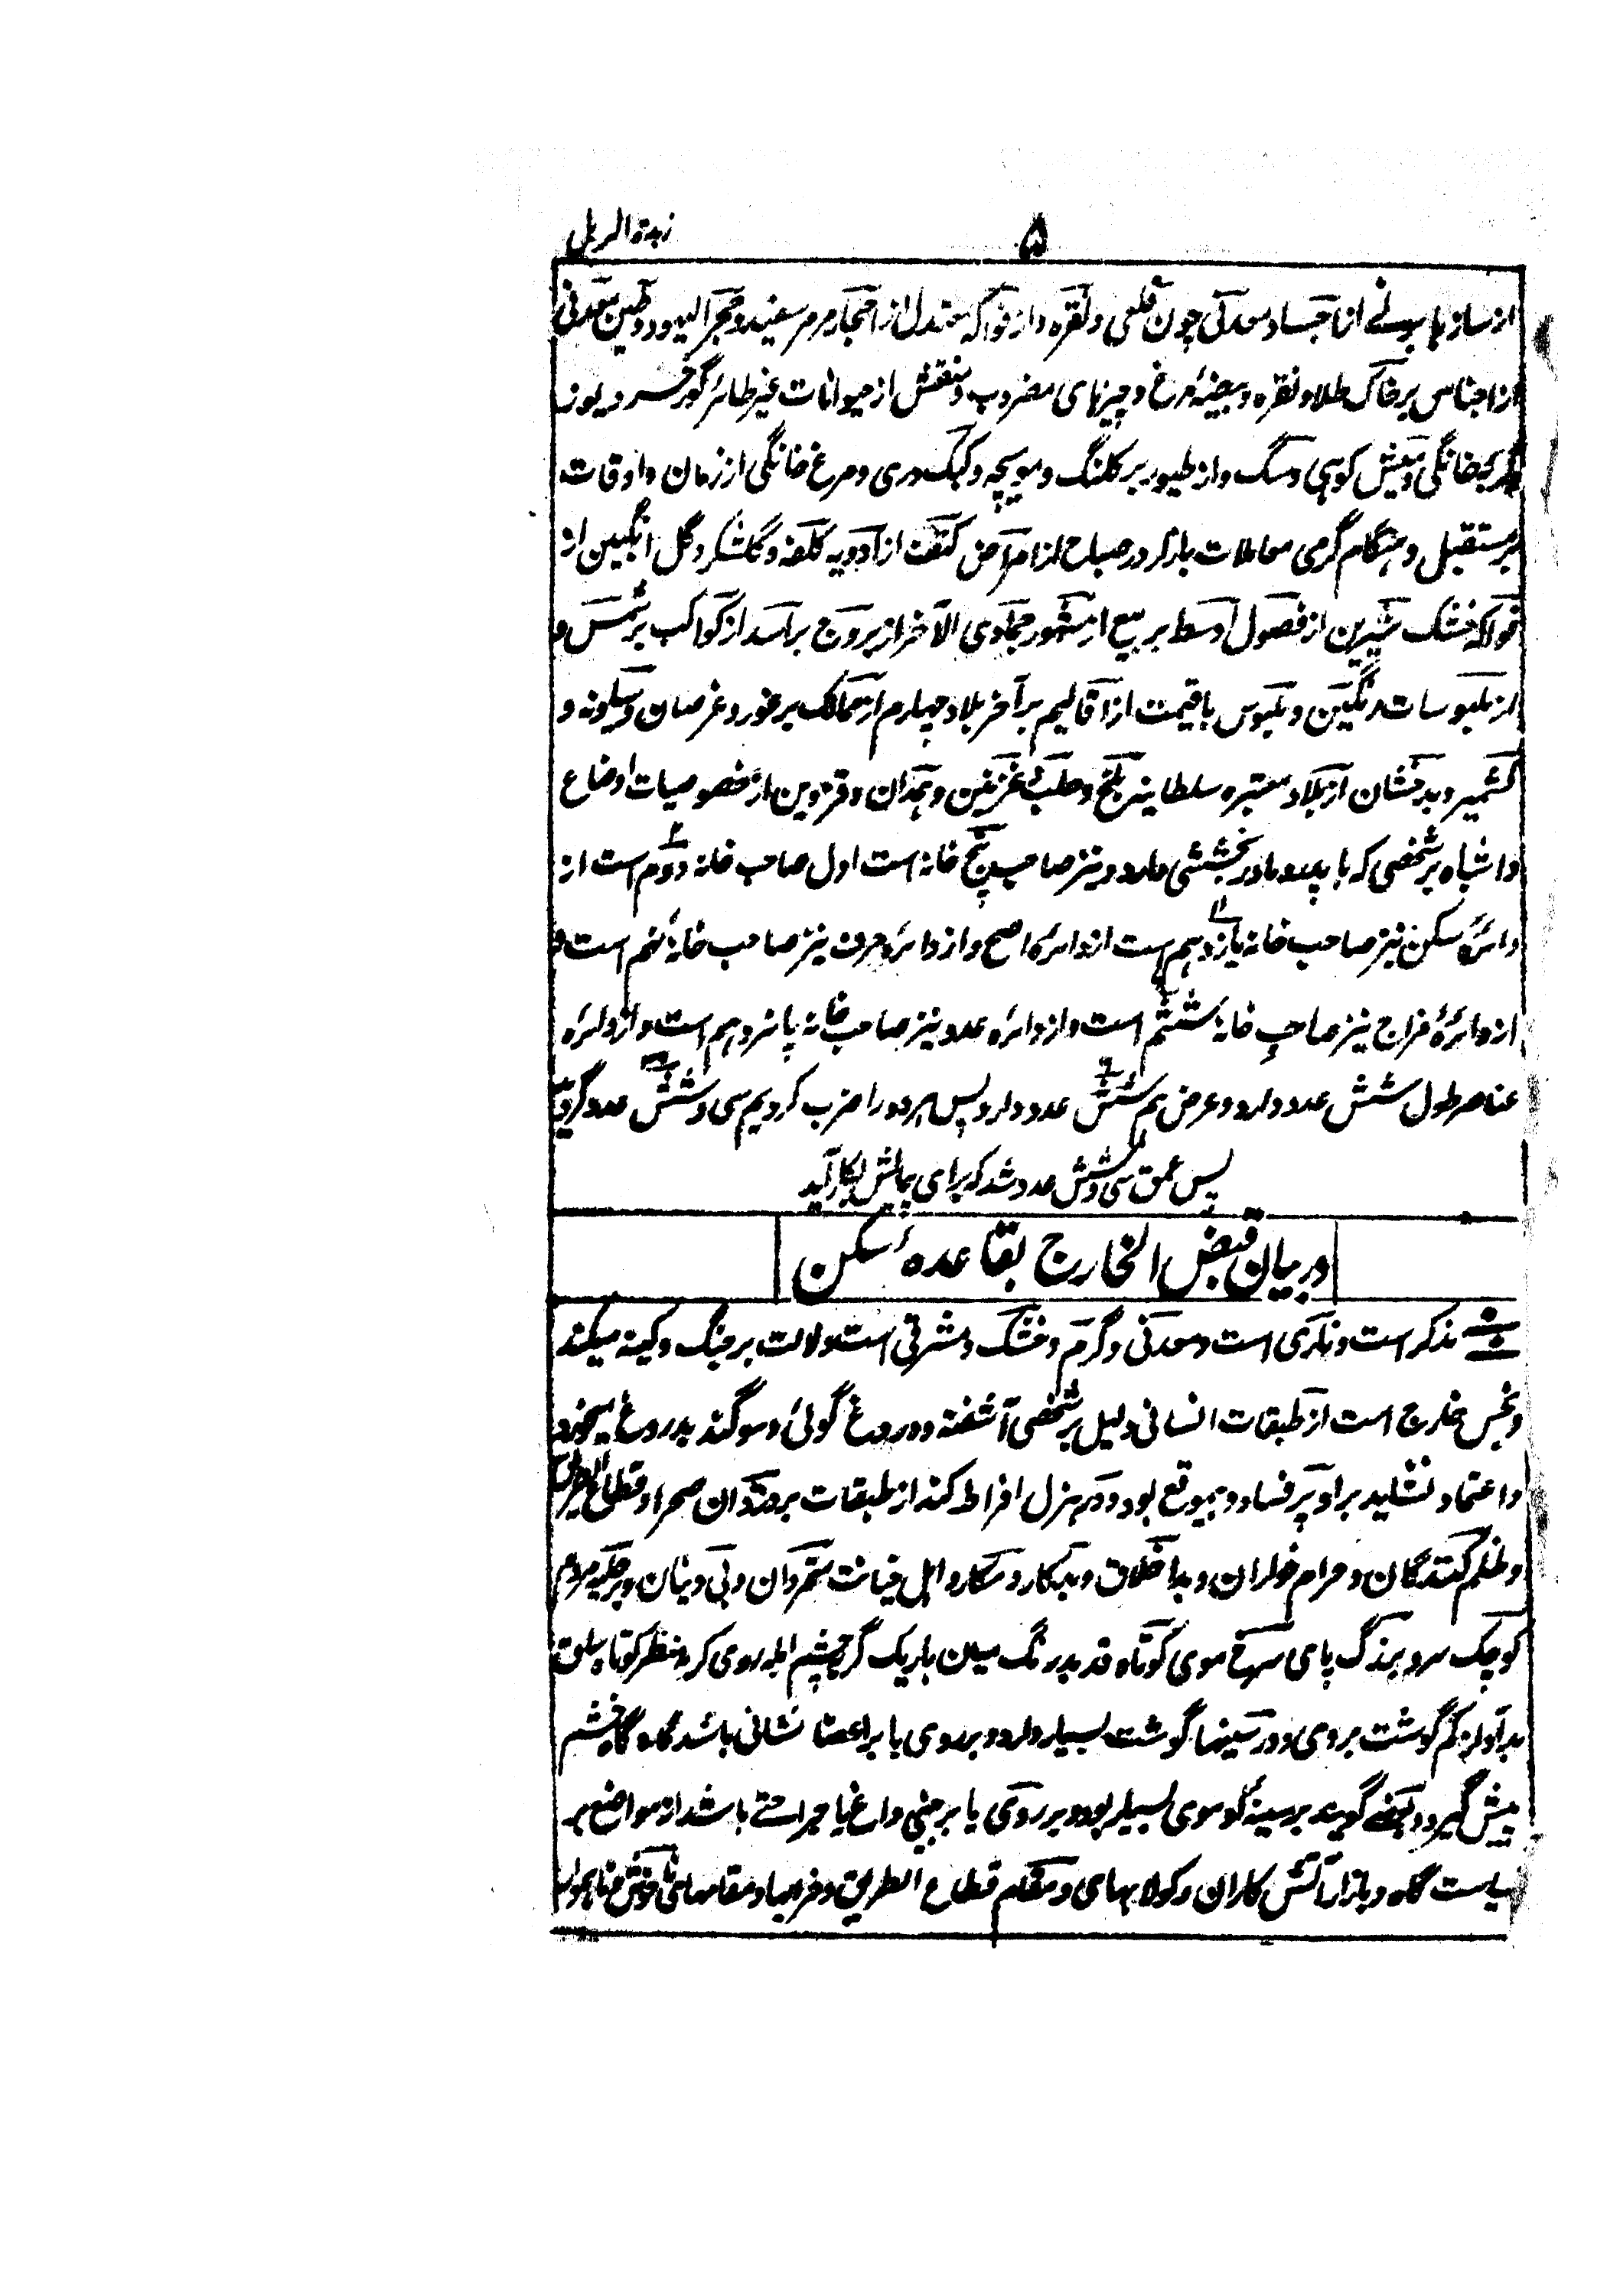 ۵
زبدة الرمل
از سازها بر نے از اجساد معدنی چون قلعی و نقره و از فواکه معتدل از احجار مرمر سفید و حجر الیهود و طین معدنی
از اجناس بر خاک طلا و نقره و بیضهٔ مرغ و چیزهای مضروب و منقش از حیوانات غیر طائر گورخر و یوز
گربه خانگی و میش کوہی و سگ و از طیور بر کلنگ و موسیچه و کبک دری و مرغ خانگی از زمان و اوقات
بر مستقبل و هنگام گرمی معاملات بازار در صباح از امراض کتف از ادویه کلفه و گلشکر و گل انگبین از
فواکه خشک شیرین از فصول اوسط ربیع از شهور جمادی الآخر از بروج بر اسد از کواکب بر شمس و
از ملبوسات رنگین و ملبوس باقیمت از اقالیم بر آخر بلاد چهارم از ممالک بر خور و غرصان و سیلونه و
کشمیر و بدخشان از بلاد معتبره سلطانیه بلخ و حلب و غزنین و همدان و قزوین از خصوصیات اوضاع
و اشباه بر شخصی که با پدر و مادر بخششی دارد و نیز صاحب پنج خانه است اول صاحب خانه دوم است از
دائرهٔ سکن نیز صاحب خانه یازدہم است از دائره اصح و از دائره حرف نیز صاحب خانهٔ نهم است و
از دائرهٔ مزاج نیز صاحب خانهٔ ششم است و از دائره عدد نیز صاحب خانه پانزدہم است و از دائره
عناصر طول شش عدد دارد و عرض ہم شش عدد دارد پس ہر دو را ضرب کردیم سی و شش عدد گردید
پس عمق سی و شش عدد شد که برای پیمائش بکار آید
در بیان قبض الخارج بقاعدهٔ سکن
مذکر است و ناری است و معدنی و گرم و خشک و مشرقی است دلالت بر جنگ و کینه میکند
و نحس خارج است از طبقات انسانی دلیل بر شخصی آشفته و دروغ گوئی و سوگند بدروغ میخورد
و اعتماد نشاید بر او پر فساد و بیموقع بود و در ہزل افراط کند از طبقات بر دزدان صحرا و قطاع الطریق
و ظلم کنندگان و حرام خواران و بداخلاق و بدکار و مکار و اہل خیانت ستمردان و بی دینان و پر حیله مردم
کوچک سر و بزرگ پای سرخ موی کوتاه قد بدرنگ میان باریک گربه چشم ابله روی کریه منظر کوتاه ساق
بد آواز کم گوشت بروی و در سینها گوشت بسیار دارد و بر روی یا بر اعضا نشانی باشد گاه گاه خشم
پیش گیرد و بعضے گویند بر سینهٔ او موی بسیار بود و بر روی یا بر جبین داغ یا جراحتے باشد از مواضع بر
سیاست گاه و بازار آتش کاران و کولابهای و مقام قطاع الطریق و خرابها و مقامهای ناخوش و ناہموار